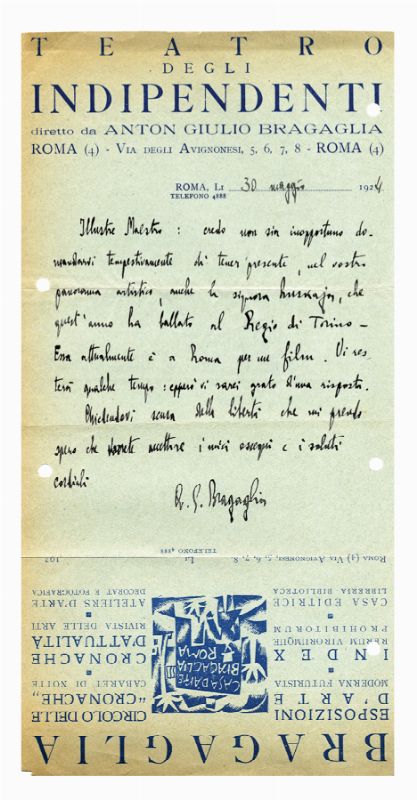 TEATRO
DEGLI
INDIPENDENTI
diretto da ANTON GIULIO BRAGAGLIA
ROMA (4) - VIA DEGLI AVIGNONESI, 5, 6, 7, 8 - ROMA (4)
ROMA, LI 30 maggio 1924
TELEFONO 4888
Illustre Maestro: credo non sia inopportuno do-
mandarvi tempestivamente di tener presente, nel vostro
panorama artistico, anche la signora, che
quest'anno ha ballato al Regio di Torino -
Essa attualmente è a Roma per un film. Vi res-
terà qualche tempo: epperò vi sarei grato d'una risposta.
Chiedendovi scusa della libertà che mi prendo
spero che vorrete accettare i miei ossequi e i saluti
cordiali
A. G. Bragaglia
TELEFONO 4888
ROMA (4) VIA AVIGNONESI, 5, 6, 7, 8 LI 192
BRAGAGLIA
ESPOSIZIONI
D'ARTE
MODERNA FUTURISTA
INDEX
RERUM VIRORUMQUE
PROHIBITORUM
CASA EDITRICE
LIBRERIA BIBLIOTECA
CASA D'ARTE
BRAGAGLIA
ROMA
CIRCOLO DELLE
"CRONACHE"
CABARET DI NOTTE
CRONACHE
D'ATTUALITÀ
RIVISTA DELLE ARTI
ATELIERS D'ARTE
DECORAT. E FOTOGRAFICA